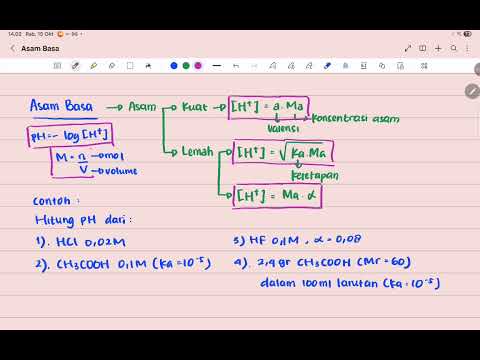 14.02 Rab. 16 Okt
96
Asam Basa
Asam Basa → Asam → Kuat → [H⁺] = a. Ma
valensi
konsentrasi asam
pH = - log [H⁺]
Lemah → [H⁺] = √Ka.Ma
ketetapan
M = n/V → mol → volume
[H⁺] = Ma. α
Contoh :
Hitung pH dari :
1). HCl 0,02M
2). CH₃COOH 0,1M (Ka = 10⁻⁵)
3) HF 0,1M , α = 0,08
4). 2,4 gr CH₃COOH (Mr = 60)
dalam 100ml larutan (Ka = 10⁻⁵)